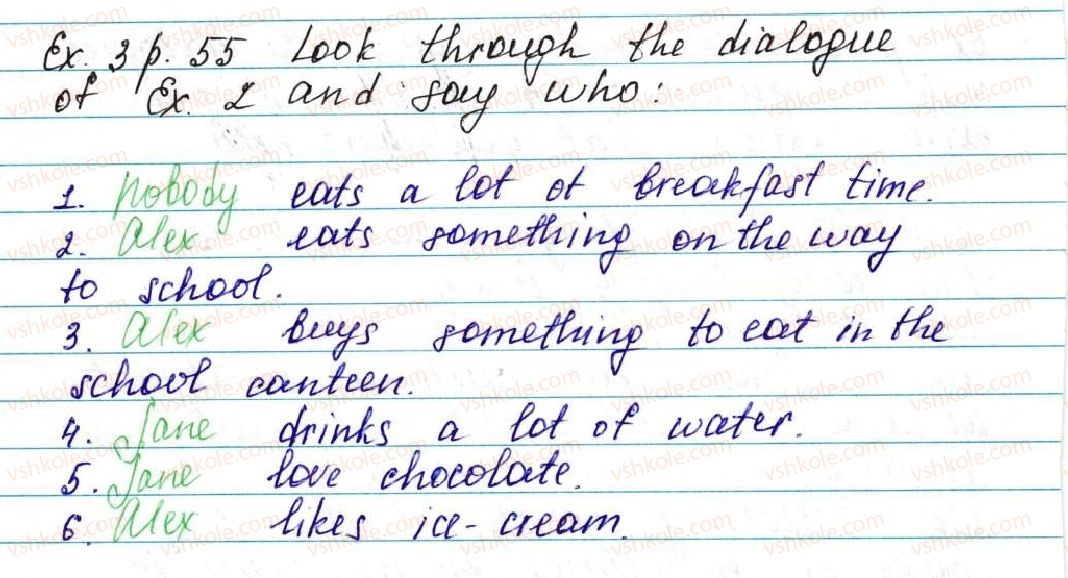 Ex. 3 p. 55 Look through the dialogue
of Ex. 2 and say who:
1. nobody eats a lot at breakfast time.
2. Alex eats something on the way
to school.
3. Alex buys something to eat in the
school canteen.
4. Jane drinks a lot of water.
5. Jane love chocolate.
6. Alex likes ice-cream.